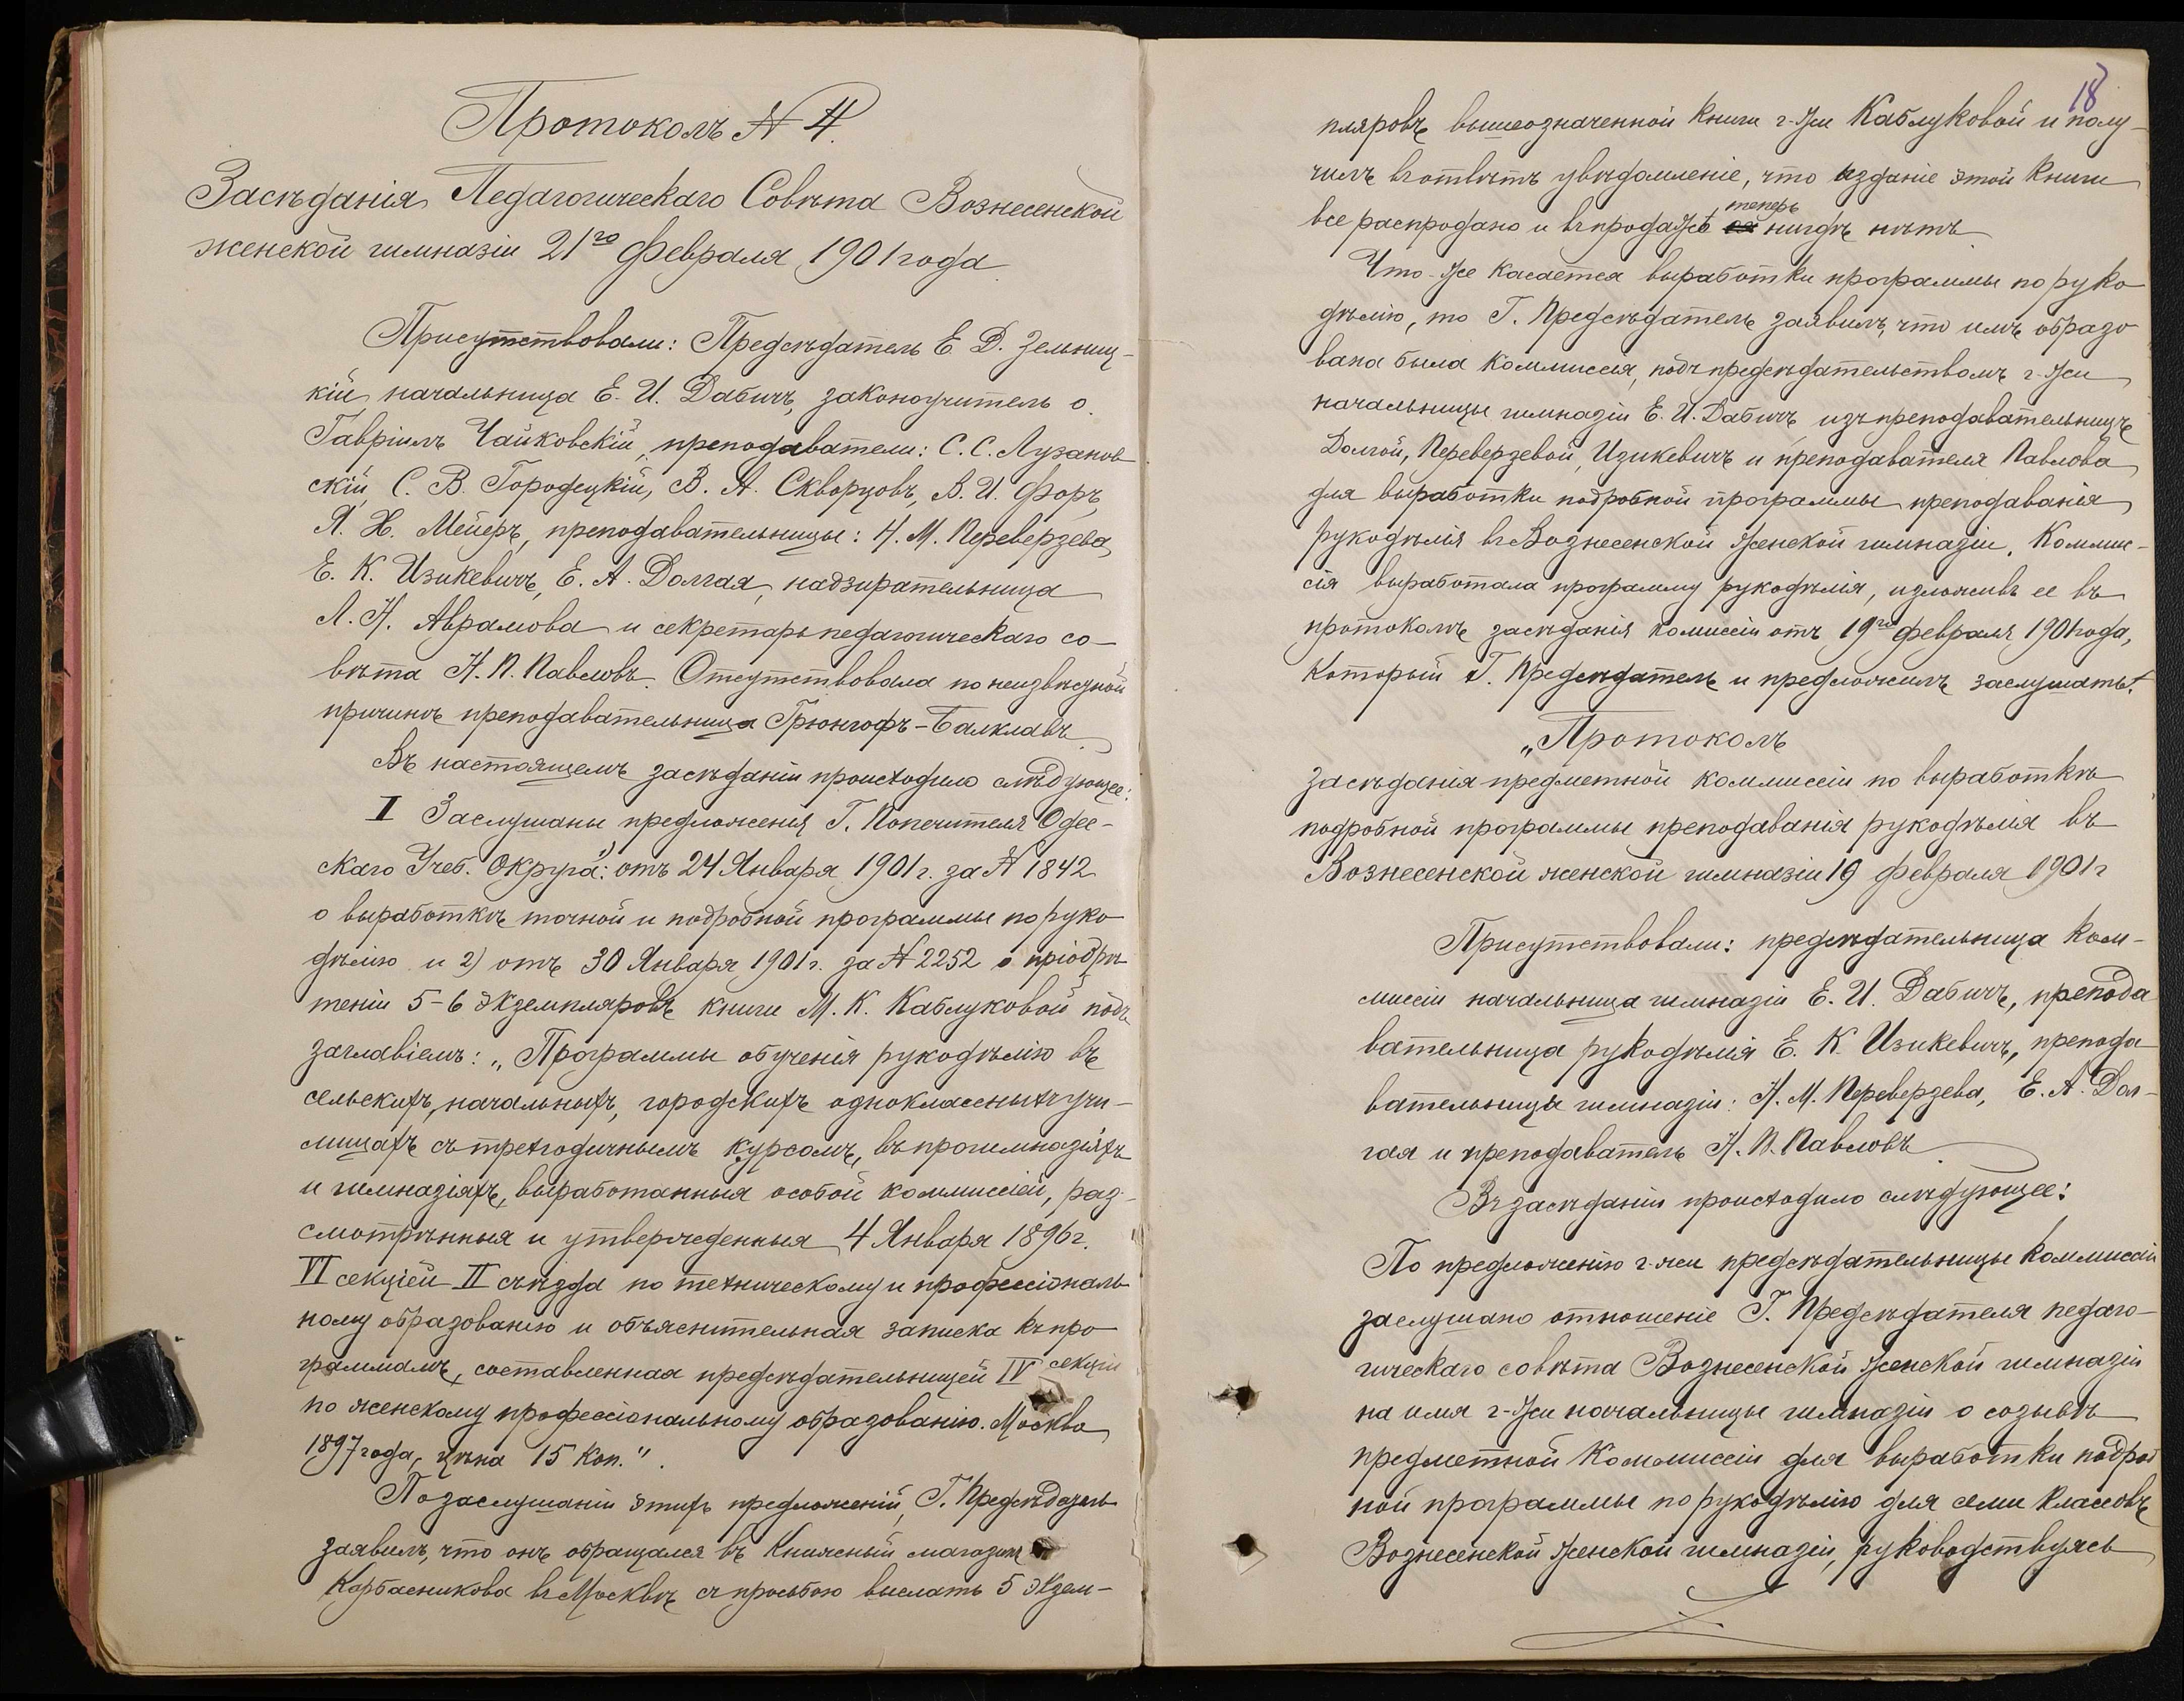 Протоколъ № 4.
Засѣданія Педагогическаго Совѣта Вознесенской
женской гимназіи 21го Февраля 1901 года.
Присутствовали: Предсѣдатель Е. Д. Зельниц-
кій, начальница Е. И. Дабичъ, законоучитель о.
Гавріилъ Чайковскій, преподаватели: С. С. Лузанов
скій, С. В. Городецкій, В. А. Скворцовъ, В. И. Форъ,
Я. Х. Мейеръ, преподавательницы: Н. М. Переверзева,
Е. К. Изикевичъ, Е. А. Долгая, надзирательница
Л. Н. Аврамова и секретарь педагогическаго со-
вѣта Н. П. Павловъ. Отсутствовала по неизвѣстной
причинѣ преподавательница Грюнгофъ-Балклавъ.
Въ настоящемъ засѣданіи происходило слѣдующее:
I Заслушаны предложенія Г. Попечителя Одес-
скаго Учеб. Округа: 1) отъ 24 Января 1901 г. за № 1842
о выработкѣ точной и подробной программы по руко
дѣлію и 2) отъ 30 Января 1901 г. за № 2252 о пріобрѣ
теніи 5-6 экземпляровъ книги М. К. Каблуковой подъ
заглавіемъ: „Программы обученія рукодѣлію въ
сельскихъ, начальныхъ, городскихъ одноклассныхъ учи-
лищахъ съ трехгодичнымъ курсомъ, въ прогимназіяхъ
и гимназіяхъ, выработанныя особой коммиссіей, раз-
смотрѣнныя и утвержденныя 4 Января 1896 г.
VI секціей II съѣзда по техническому и профессіональ
ному образованію и объяснительная записка къ про
граммамъ, составленная предсѣдательницей IV секціи
по женскому профессіональному образованію. Москва
1897 года, цѣна 15 коп.".
По заслушаніи этихъ предложеній, Г. Предсѣдатель
заявилъ, что онъ обращался въ Книжный магазинъ
Карбасникова въ Москвѣ съ просьбою выслать 5 экзем-
18
пляровъ вышеозначенной книги г-жи Каблуковой и полу-
чилъ въ отвѣтъ увѣдомленіе, что изданіе этой книги
теперь
все распродано и въ продажѣ ея нигдѣ нѣтъ.
Что-же касается выработки программы по руко
дѣлію, то Г. Предсѣдатель заявилъ, что имъ образо
вана была коммиссія, подъ предсѣдательствомъ г-жи
начальницы гимназіи Е. И. Дабичъ изъ преподавательницъ
Долгой, Переверзевой, Изикевичъ и преподавателя Павлова
для выработки подробной программы преподаванія
рукодѣлія въ Вознесенской женской гимназіи. Коммис-
сія выработала программу рукодѣлія, изложивъ ее въ
протоколѣ засѣданія комиссіи отъ 19го февраля 1901 года,
который Г. Предсѣдатель и предложилъ заслушать.
„Протоколъ
засѣданія предметной коммиссіи по выработкѣ
подробной программы преподаванія рукодѣлія въ
Вознесенской женской гимназіи 19 февраля 1901 г
Присутствовали: предсѣдательница ком-
миссіи начальница гимназіи Е. И. Дабичъ, препода
вательница рукодѣлія Е. К. Изикевичъ, препода
вательницы гимназіи: Н. М. Переверзева, Е. А. Дол-
гая и преподаватель Н. П. Павловъ.
Въ засѣданіи происходило слѣдующее:
По предложенію г-жи предсѣдательницы коммиссіи
заслушано отношеніе Г. Предсѣдателя педаго-
гическаго совѣта Вознесенской женской гимназіи
на имя г-жи начальницы гимназіи о созывѣ
предметной Коммиссіи для выработки подроб
ной программы по рукодѣлію для семи классовъ
Вознесенской женской гимназіи, руководствуясь